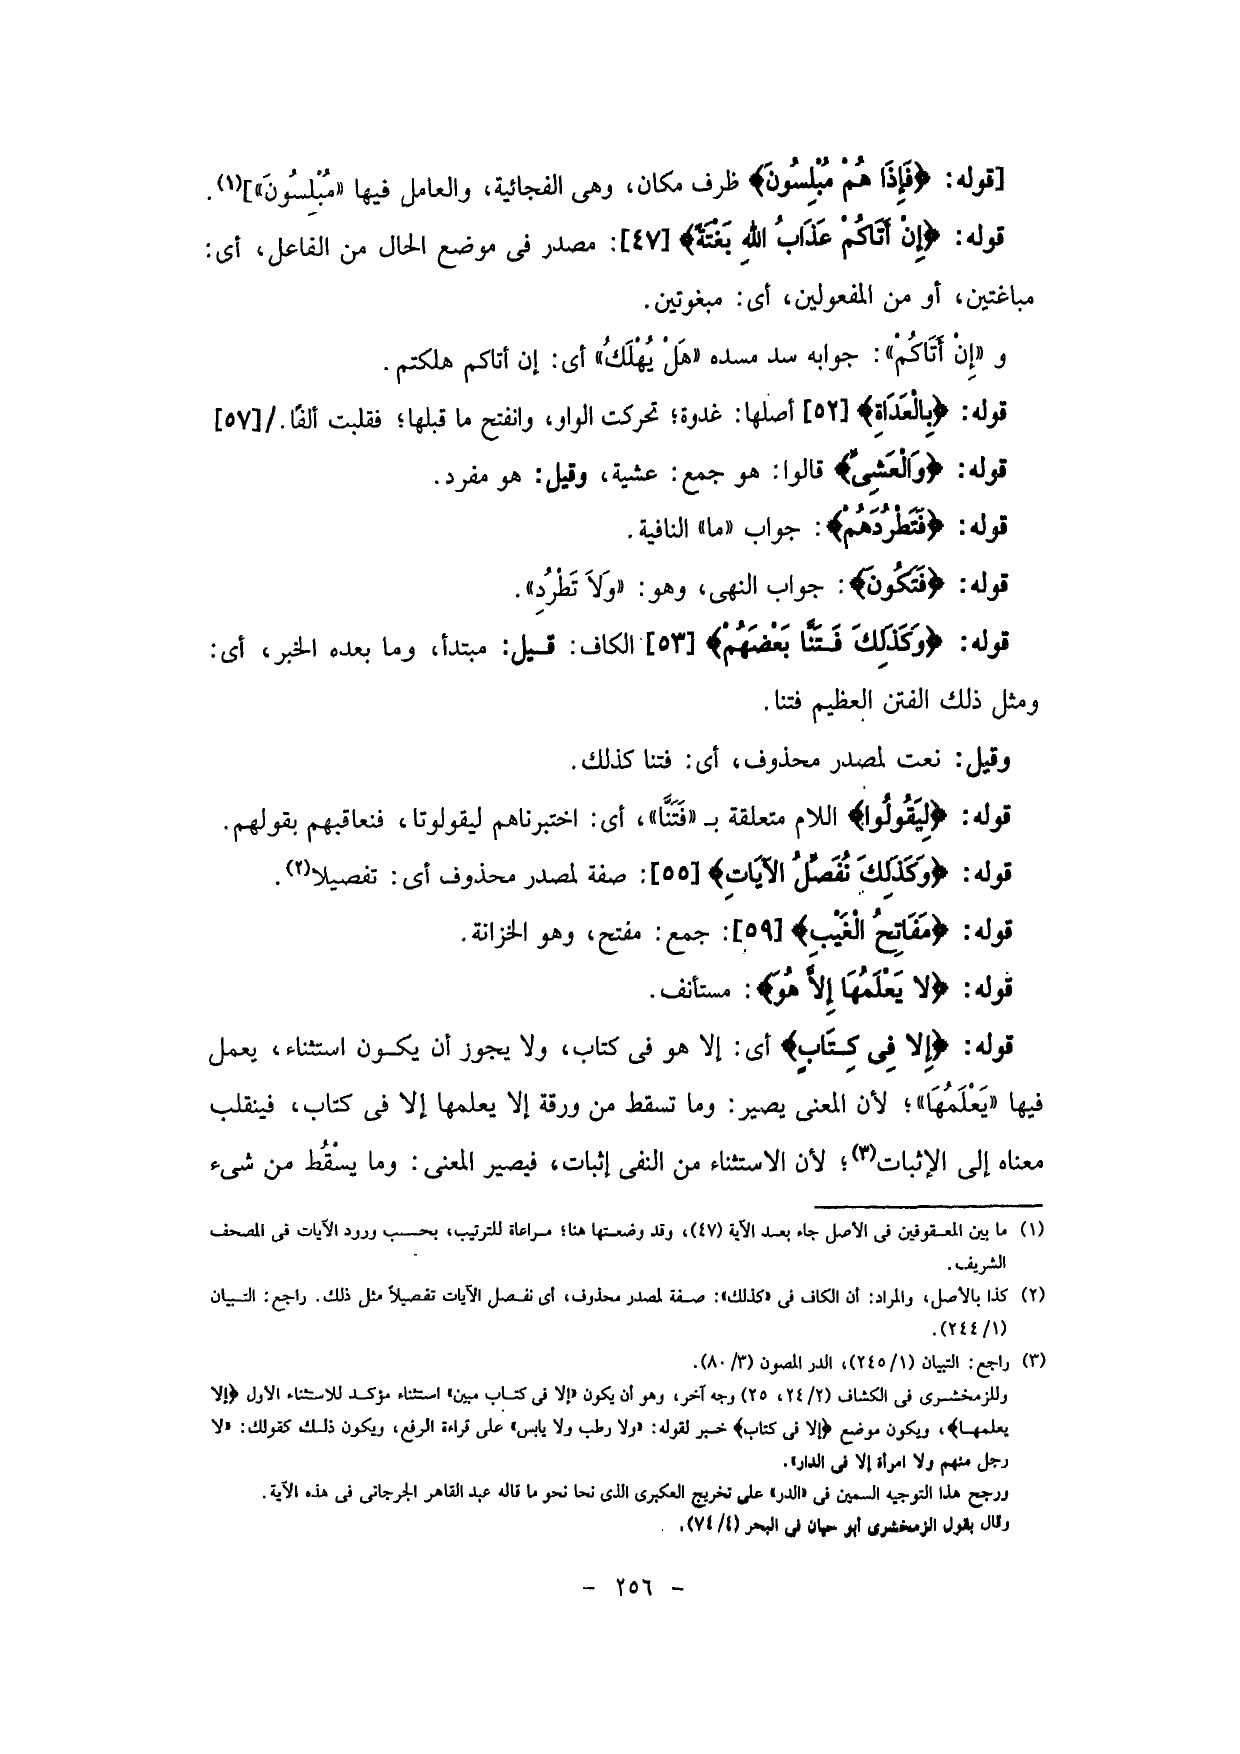 [قوله: ﴿فَإِذَا هُمْ مُبْلِسُونَ﴾ ظرف مكان، وهى الفجائية، والعامل فيها «مُبْلِسُونَ»](١).
قوله: ﴿إِنْ أَتَاكُمْ عَذَابُ اللَّهِ بَغْتَةً﴾ [٤٧]: مصدر فى موضع الحال من الفاعل، أى:
مباغتين، أو من المفعولين، أى: مبغوتين.
و «إِنْ أَتَاكُمْ»: جوابه سد مسده «هَلْ يُهْلَكُ» أى: إن أتاكم هلكتم.
قوله: ﴿بِالْغَدَاةِ﴾ [٥٢] أصلها: غدوة؛ تحركت الواو، وانفتح ما قبلها؛ فقلبت ألفًا./[٥٧]
قوله: ﴿وَالْعَشِىِّ﴾ قالوا: هو جمع: عشية، وقيل: هو مفرد.
قوله: ﴿فَتَطْرُدَهُمْ﴾: جواب «ما» النافية.
قوله: ﴿فَتَكُونَ﴾: جواب النهى، وهو: «وَلاَ تَطْرُدِ».
قوله: ﴿وَكَذَلِكَ فَـتَنَّا بَعْضَهُمْ﴾ [٥٣] الكاف: قـيل: مبتدأ، وما بعده الخبر، أى:
ومثل ذلك الفتن العظيم فتنا.
وقيل: نعت لمصدر محذوف، أى: فتنا كذلك.
قوله: ﴿لِيَقُولُوا﴾ اللام متعلقة بـ «فَتَنَّا»، أى: اختبرناهم ليقولوتا، فنعاقبهم بقولهم.
قوله: ﴿وَكَذَلِكَ نُفَصِّلُ الآيَاتِ﴾ [٥٥]: صفة لمصدر محذوف أى: تفصيلا(٢).
قوله: ﴿مَفَاتِحُ الْغَيْبِ﴾ [٥٩]: جمع: مفتح، وهو الخزانة.
قوله: ﴿لا يَعْلَمُهَا إِلاَّ هُوَ﴾: مستأنف.
قوله: ﴿إِلا فِى كِـتَابٍ﴾ أى: إلا هو فى كتاب، ولا يجوز أن يكـون استثناء، يعمل
فيها «يَعْلَمُهَا»؛ لأن المعنى يصير: وما تسقط من ورقة إلا يعلمها إلا فى كتاب، فينقلب
معناه إلى الإثبات(٣)؛ لأن الاستثناء من النفى إثبات، فيصير المعنى: وما يسْقُط من شىء
(١) ما بين المعـقوفين فى الأصل جاء بعـد الآية (٤٧)، وقد وضعـتها هنا؛ مـراعاة للترتيب، بحـسب ورود الآيات فى المصحف
الشريف.
(٢) كذا بالأصل، والمراد: أن الكاف فى «كذلك»: صـفة لمصدر محذوف، أى نفـصل الآيات تفصيلاً مثل ذلك. راجع: التـبيان
(١/ ٢٤٤).
(٣) راجع: التبيان (١/ ٢٤٥)، الدر المصون (٣/ ٨٠).
وللزمخشـرى فى الكشاف (٢/ ٢٤، ٢٥) وجه آخر، وهو أن يكون «إلا فى كتـاب مبين» استثناء مؤكـد للاستثناء الأول ﴿إلا
يعلمهـا﴾، ويكون موضع ﴿إلا فى كتاب﴾ خـبر لقوله: «ولا رطب ولا يابس» على قراءة الرفع، ويكون ذلـك كقولك: «لا
رجل منهم ولا امرأة إلا فى الدار».
ورجح هذا التوجيه السمين فى «الدر» على تخريج العكبرى الذى نحا نحو ما قاله عبد القاهر الجرجانى فى هذه الآية.
وقال بقول الزمخشرى أبو حيان فى البحر (٤/ ٧٤).
- ٢٥٦ -